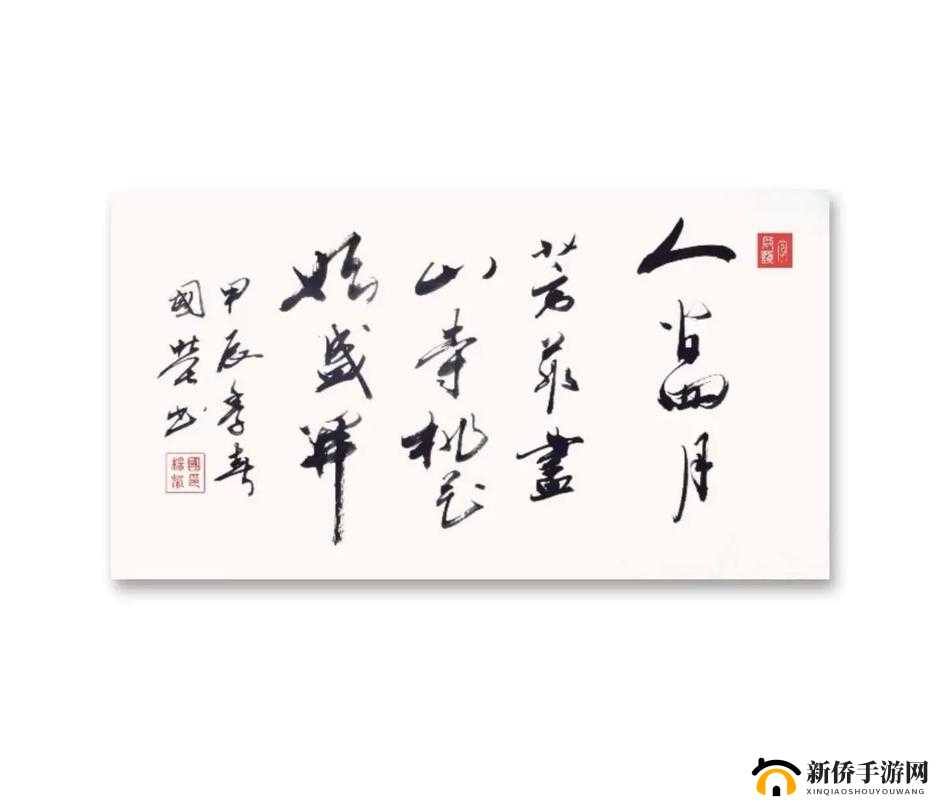 人間四月
芳菲盡
山寺桃花
始盛開
甲辰季春
國榮书
新侨手游网
XINQIAOSHOUYOUWANG